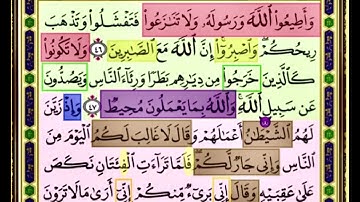 وَأَطِيعُوا۟ ٱللَّهَ وَرَسُولَهُۥ وَلَا تَنَٰزَعُوا۟ فَتَفْشَلُوا۟ وَتَذْهَبَ
رِيحُكُمْ ۖ وَٱصْبِرُوٓا۟ ۚ إِنَّ ٱللَّهَ مَعَ ٱلصَّٰبِرِينَ ٤٦ وَلَا تَكُونُوا۟
كَٱلَّذِينَ خَرَجُوا۟ مِن دِيَٰرِهِم بَطَرًا وَرِئَآءَ ٱلنَّاسِ وَيَصُدُّونَ
عَن سَبِيلِ ٱللَّهِ ۚ وَٱللَّهُ بِمَا يَعْمَلُونَ مُحِيطٌ ٤٧ وَإِذْ زَيَّنَ
لَهُمُ ٱلشَّيْطَٰنُ أَعْمَٰلَهُمْ وَقَالَ لَا غَالِبَ لَكُمُ ٱلْيَوْمَ مِنَ
ٱلنَّاسِ وَإِنِّى جَارٌ لَّكُمْ ۖ فَلَمَّا تَرَآءَتِ ٱلْفِئَتَانِ نَكَصَ
عَلَىٰ عَقِبَيْهِ وَقَالَ إِنِّى بَرِىٓءٌ مِّنكُمْ إِنِّىٓ أَرَىٰ مَا لَا تَرَوْنَ